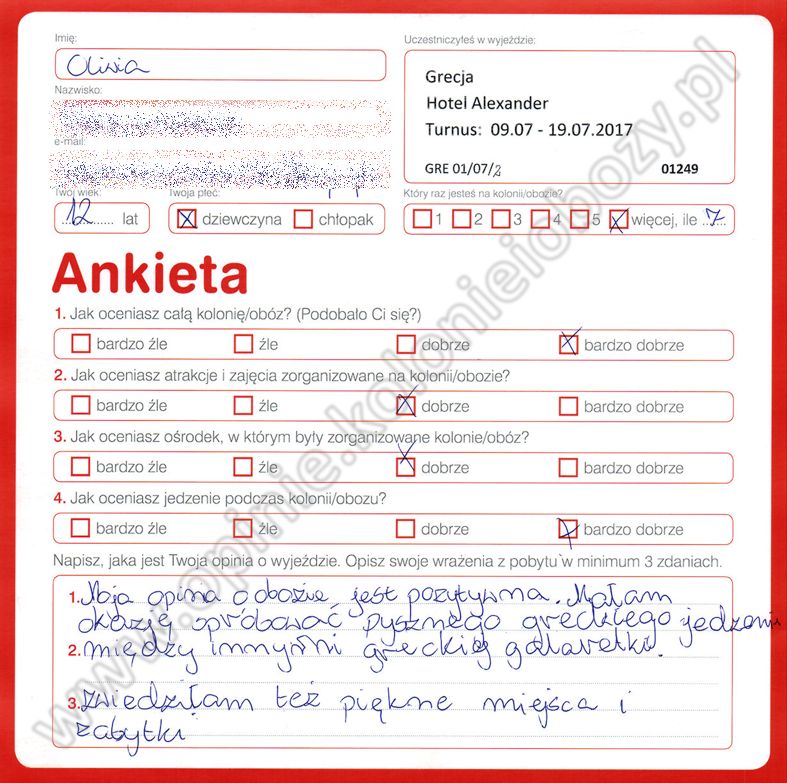 Imię:
Oliwia
Uczestniczyłeś w wyjeździe:
Grecja
Hotel Alexander
Turnus: 09.07 - 19.07.2017
GRE 01/07/2 01249
Nazwisko:
e-mail:
Twój wiek:
12 lat
Twoja płeć:
dziewczyna chłopak
Który raz jesteś na kolonii/obozie?
1 2 3 4 5 więcej, ile 7
Ankieta
1. Jak oceniasz całą kolonię/obóz? (Podobało Ci się?)
bardzo źle źle dobrze bardzo dobrze
2. Jak oceniasz atrakcje i zajęcia zorganizowane na kolonii/obozie?
bardzo źle źle dobrze bardzo dobrze
3. Jak oceniasz ośrodek, w którym były zorganizowane kolonie/obóz?
bardzo źle źle dobrze bardzo dobrze
4. Jak oceniasz jedzenie podczas kolonii/obozu?
bardzo źle źle dobrze bardzo dobrze
Napisz, jaka jest Twoja opinia o wyjeździe. Opisz swoje wrażenia z pobytu w minimum 3 zdaniach.
1. Moja opina o obozie jest pozytywna. Małam
okazję opróbować pysznego greckiego jedzenia
2. między innymi greckiej galaretki.
3. zwiedziłam też piękne miejsca i
zabytki
www.opinie.kolonieiobozy.pl